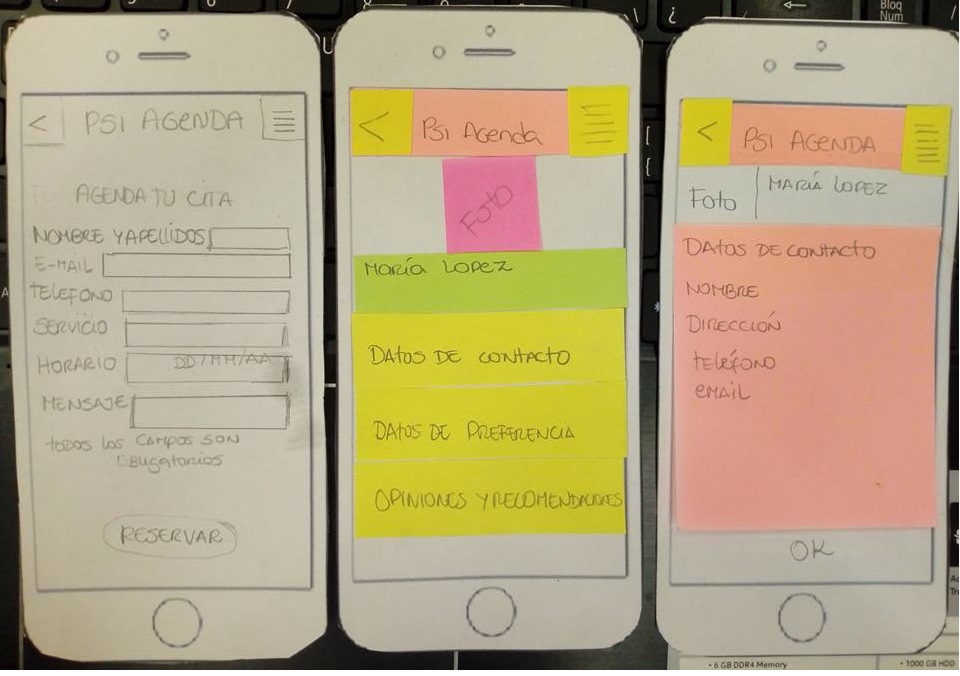 < PSI AGENDA
AGENDA TU CITA
NOMBRE Y APELLIDOS
E-MAIL
TELEFONO
SERVICIO
HORARIO DD/MM/AA
MENSAJE
todos los campos son
obligatorios
RESERVAR
< Psi Agenda
Foto
María Lopez
DATOS DE CONTACTO
DATOS DE PREFERENCIA
OPINIONES Y RECOMENDACIONES
< PSI AGENDA
Foto MARÍA LOPEZ
DATOS DE CONTACTO
NOMBRE
DIRECCIÓN
teléfono
EMAIL
OK
Bloq
Num
¿
[
{
• 6 GB DDR4 Memory
• 1000 GB HDD